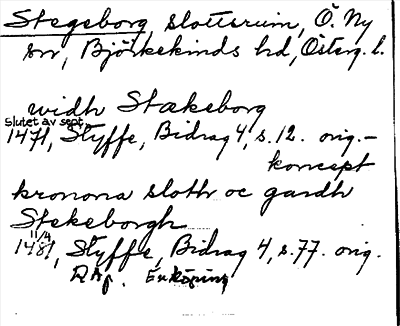 Stegeborg, slottsruin, Ö. Ny
sn, Björkekinds hd, Österg. l.
widh Stækeborg
slutet av sept.
1471, Styffe, Bidrag 4, s. 12. orig.-
koncept
kronona sloth oc gardh
Stekeborgh
11/4
1481, Styffe, Bidrag 4, s. 77. orig.
RAp. Enköping